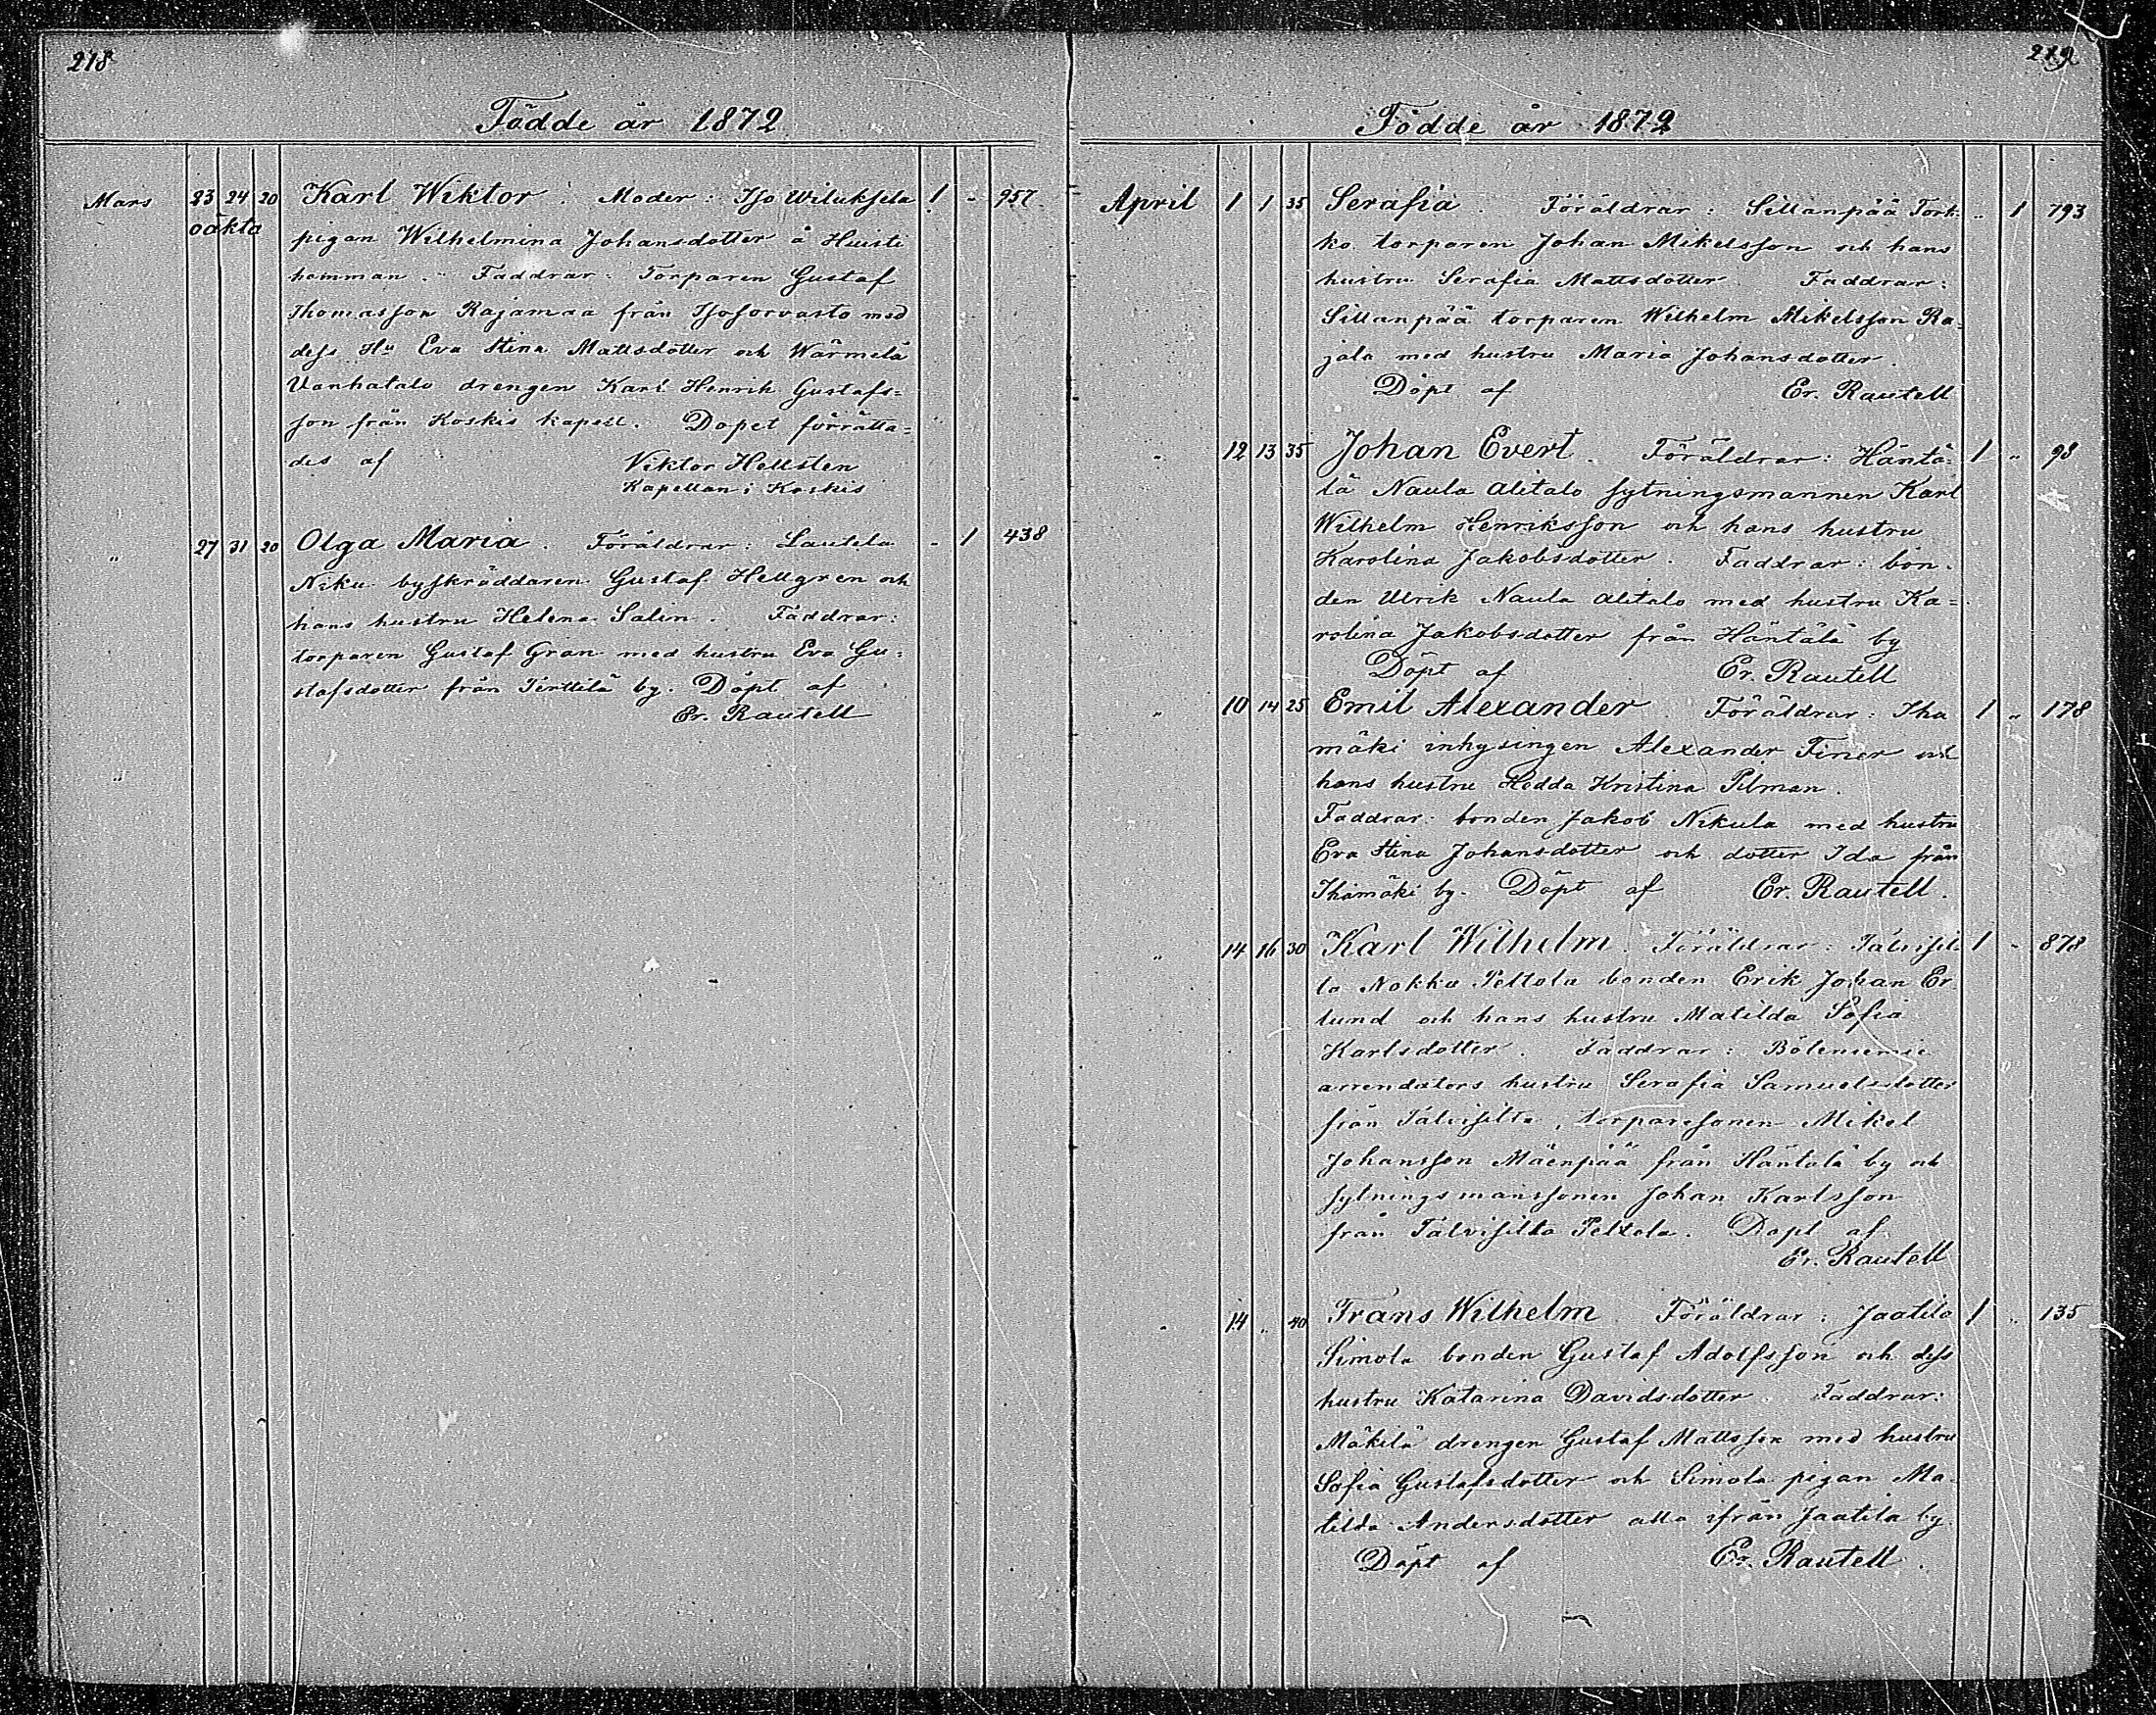 218
Födde år 1872
Mars 23 24 20 Karl Wiktor. Moder: Iso Wiluksela 1 " 957
oäkta
pigan Wilhelmina Johansdotter å Huisti
hemman. Faddrar: Torparen Gustaf
Thomasson Rajamaa från Isosorvasto med
dess Hu Eva Stina Mattsdotter och Wärmelä
Vanhatalo drengen Karl Henrik Gustafs=
son från Koskis kapell. Dopet förrätta=
des af Viktor Hellsten
Kapellan i Koskis
" 27 31 20 Olga Maria. Föräldrar: Lautela " 1 438
Niku byskräddaren Gustaf Hellgren och
hans hustru Helena Salin. Faddrar:
torparen Gustaf Gran med hustru Eva Gu=
stafsdotter från Terttilä by. Döpt af
Er. Rautell
"
219
Födde år 1872
April 1 1 35 Serafia. Föräldrar: Sillanpää Tork= " 1 793
ko torparen Johan Mikelsson och hans
hustru Serafia Mattsdotter. Faddrar:
Sillanpää torparen Wilhelm Mikelsson Ra=
jala med hustru Maria Johansdotter.
Döpt af Er. Rautell
" 12 13 35 Johan Evert. Föräldrar: Häntä= 1 " 98
lä Naula Alitalo sytningsmannen Karl
Wilhelm Henriksson och hans hustru
Karolina Jakobsdotter. Faddrar: bon=
den Ulrik Naula Alitalo med hustru Ka=
rolina Jakobsdotter från Häntälä by
Döpt af Er. Rautell
" 10 14 25 Emil Alexander. Föräldrar: Iha 1 " 178
mäki inhysingen Alexander Finer och
hans hustru Hedda Kristina Pilman.
Faddrar: bonden Jakob Nikula med hustru
Eva Stina Johansdotter och dotter Ida från
Ihamäki by. Döpt af Er. Rautell.
" 14 16 30 Karl Wilhelm. Föräldrar: Talvisil 1 " 878
ta Nokka Peltola bonden Erik Johan Er
lund och hans hustru Matilda Sofia
Karlsdotter. Faddrar:
arrendators hustru Serafia Samuelsdotter
från Talvisilta, torparesonen Mikel
Johansson Mäenpää från Häntälä by och
sytningsmanssonen Johan Karlsson
från Talvisilta Peltola. Döpt af
Er. Rautell
" 14 " 40 Frans Wilhelm. Föräldrar: Jaatila 1 " 135
Simola bonden Gustaf Adolfsson och dess
hustru Katarina Davidsdotter. Faddrar:
Mäkilä drengen Gustaf Mattsson med hustru
Sofia Gustafsdotter och Simola pigan Ma=
tilda Andersdotter alla ifrån Jaatila by.
Döpt af Er. Rautell.